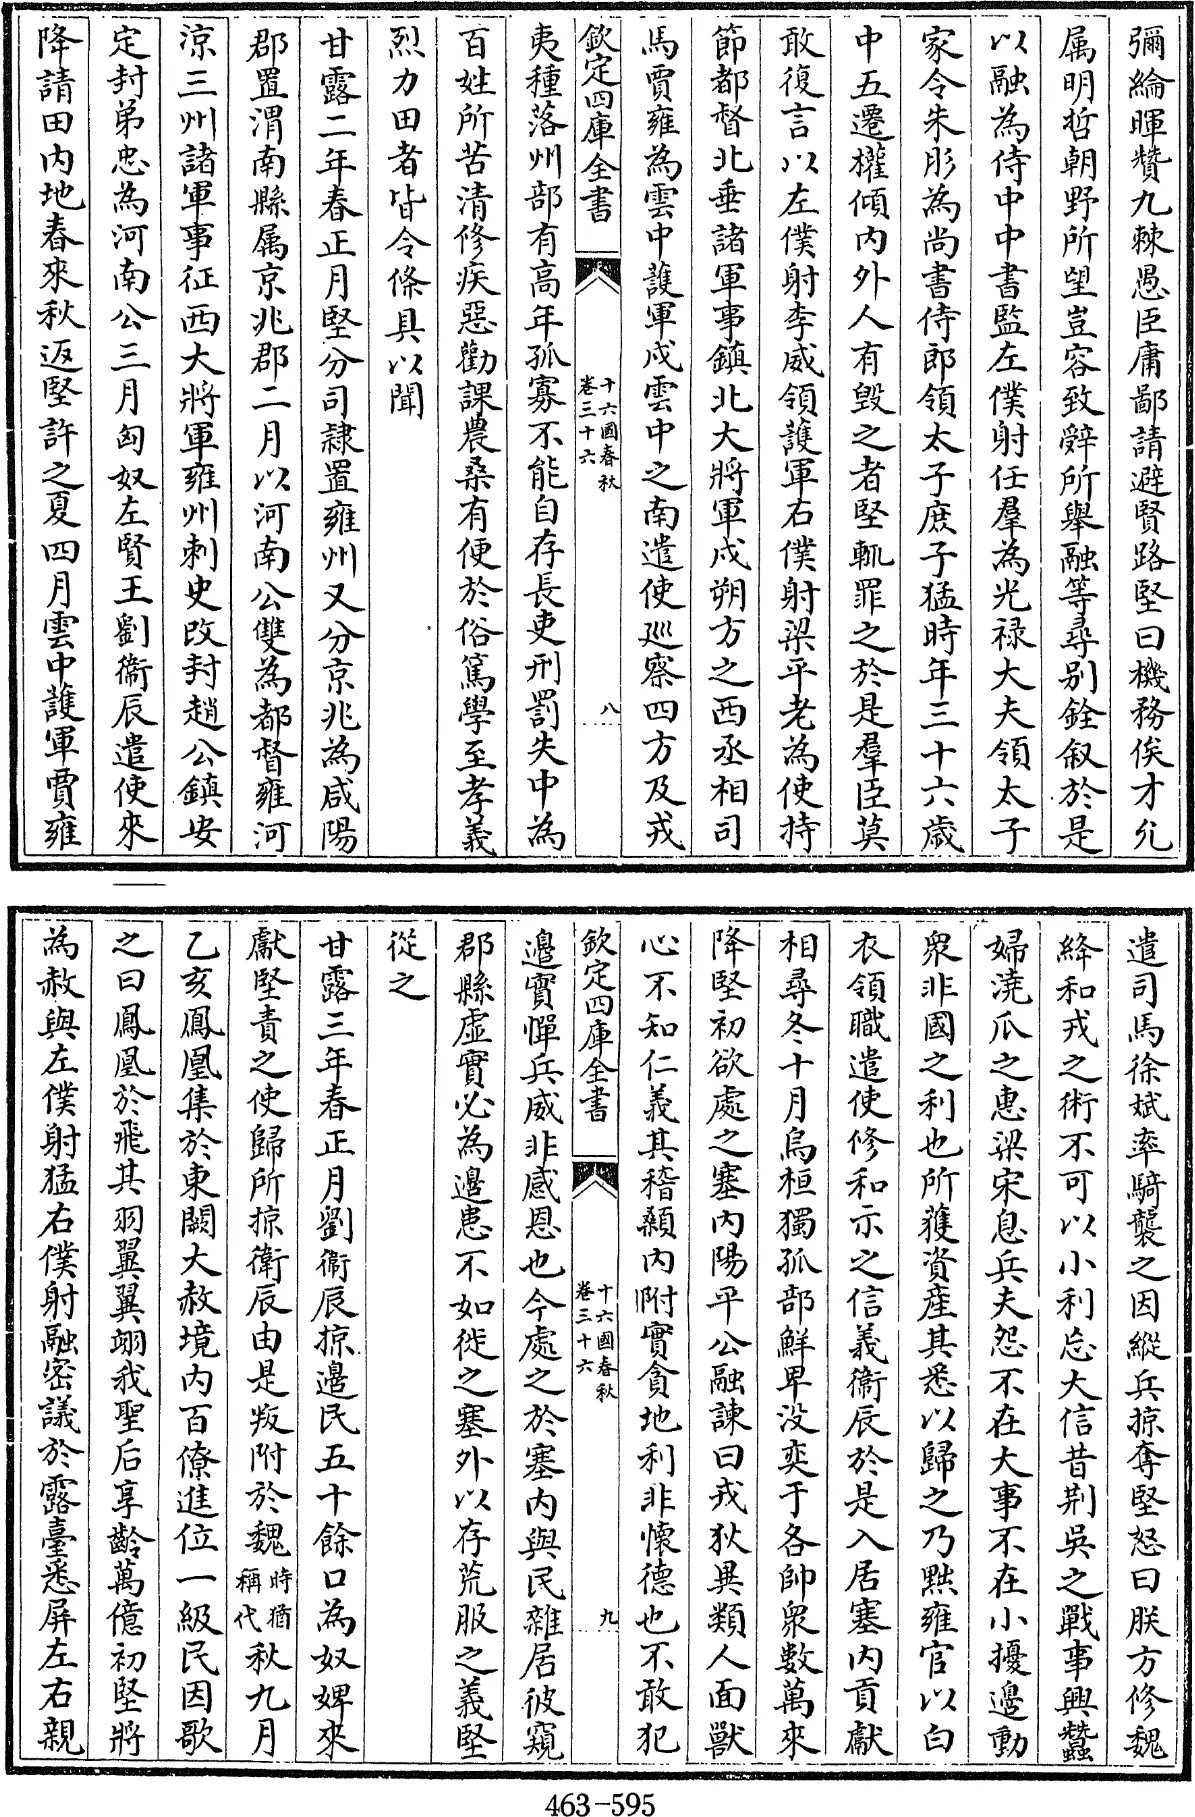 彌綸暉贊九棘愚臣庸鄙請避賢路堅曰機務俟才允
属明哲朝野所望豈容致辤所舉融等尋别銓叙於是
以融為侍中中書監左僕射任羣為光禄大夫領太子
家令朱肜為尚書侍郎領太子庶子猛時年三十六歲
中五遷權傾内外人有毁之者堅輒罪之於是羣臣莫
敢復言以左僕射李威領護軍右僕射梁平老為使持
節都督北垂諸軍事鎮北大將軍戍朔方之西丞相司
馬賈雍為雲中護軍戍雲中之南遣使廵察四方及戎
欽定四庫全書
十六國春秋
卷三十六
八
夷種落州郡有高年孤寡不能自存長吏刑罰失中為
百姓所苦清修疾惡勸課農桑有便於俗篤學至孝義
烈力田者皆令條具以聞
甘露二年春正月堅分司隷置雍州又分京兆為咸陽
郡置渭南縣属京兆郡二月以河南公雙為都督雍河
涼三州諸軍事征西大將軍雍州刺史改封趙公鎮安
定封弟忠為河南公三月匈奴左賢王劉衞辰遣使來
降請田内地春來秋返堅許之夏四月雲中護軍賈雍
遣司馬徐斌率騎襲之因縱兵掠奪堅怒曰朕方修魏
絳和戎之術不可以小利忘大信昔荆吳之戰事興蠶
婦澆瓜之惠梁宋息兵夫怨不在大事不在小擾邉動
衆非國之利也所獲資産其悉以歸之乃黜雍官以白
衣領職遣使修和示之信義衞辰於是入居塞内貢獻
相尋冬十月烏桓獨孤部鮮卑没奕于各帥衆數萬來
降堅初欲處之塞内陽平公融諫曰戎狄異類人面獸
心不知仁義其稽顙内附實貪地利非懷德也不敢犯
欽定四庫全書
十六國春秋
卷三十六
九
邉實憚兵威非感恩也今處之於塞内與民雜居彼窺
郡縣虚實必為邉患不如徙之塞外以存荒服之義堅
從之
甘露三年春正月劉衞辰掠邉民五十餘口為奴婢來
獻堅責之使歸所掠衛辰由是叛附於魏時猶稱代秋九月
乙亥鳳凰集於東闕大赦境内百僚進位一級民因歌
之曰鳳凰於飛其羽翼翼翊我聖后享齡萬億初堅將
為赦與左僕射猛右僕射融密議於露臺悉屏左右親
463-595